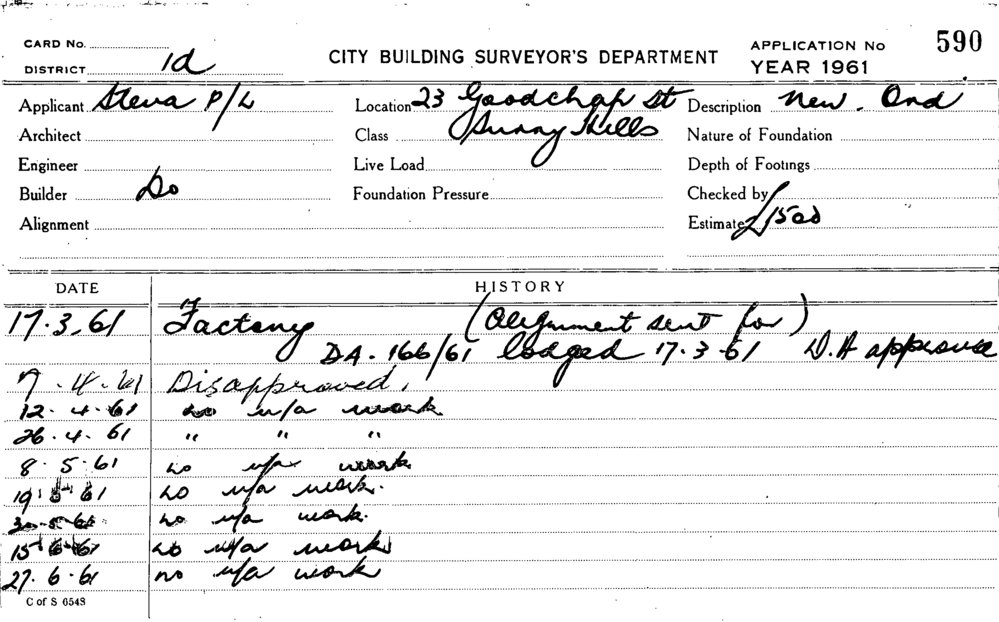 CARD No.
DISTRICT 1d
CITY BUILDING SURVEYOR'S DEPARTMENT
APPLICATION No 590
YEAR 1961
Applicant Steva P/L
Location 23 Goodchap St
Surry Hills
Description New. Ord
Architect
Class
Nature of Foundation
Engineer
Live Load
Depth of Footings
Builder Do
Foundation Pressure
Checked by
Alignment
Estimate £1500
DATE HISTORY
17.3.61 Factory (Alignment sent for)
DA. 166/61 lodged 17.3.61 D.A
7.4.61 Disapproved.
12.4.61 no u/a work
26.4.61 " " "
8.5.61 no u/a work
19.5.61 no u/a work.
30.5.61 no u/a work.
15.6.61 no u/a work
27.6.61 no u/a work
C of S 6548